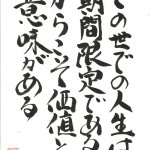 この世での人生は
期間限定である
からこそ価値と
意味がある